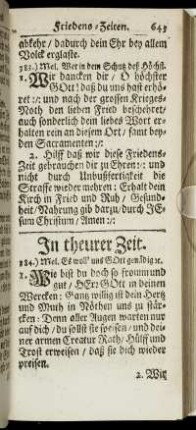 Friedens-Zeiten. 643
abkehr / dadurch dein Ehr bey allem
Volck erglaste.
381.) Mel. Wer in den Schutz des Höchst.
1. Wir dancken dir / O höchster
GOtt! daß du uns hast erhö-
ret :/: und nach der grossen Krieges-
Noth den lieben Fried bescheret/
auch sonderlich dein liebes Wort er-
halten rein an diesem Ort / samt bey-
den Sacramenten :/:
2. Hilff daß wir diese Friedens-
Zeit gebrauchen dir zu Ehren :/: und
nicht durch Unbußfertigkeit die
Straffe wieder mehren: Erhalt dein
Kirch in Fried und Ruh / Gesund-
heit / Nahrung gib darzu / durch JE-
sum Christum / Amen :/:
In theurer Zeit.
384.) Mel. Es woll uns GOtt genädig ꝛc.
1. Wie bist du doch so fromm und
gut / HErr GOtt in deinen
Wercken: Gantz willig ist dein Hertz
und Muth in Nöthen uns zu stär-
cken: Denn aller Augen warten nur
auf dich / du sollst sie speisen / und dei-
ner armen Creatur Rath / Hülff und
Trost erweisen / daß sie dich wieder
preisen.
2. Wir